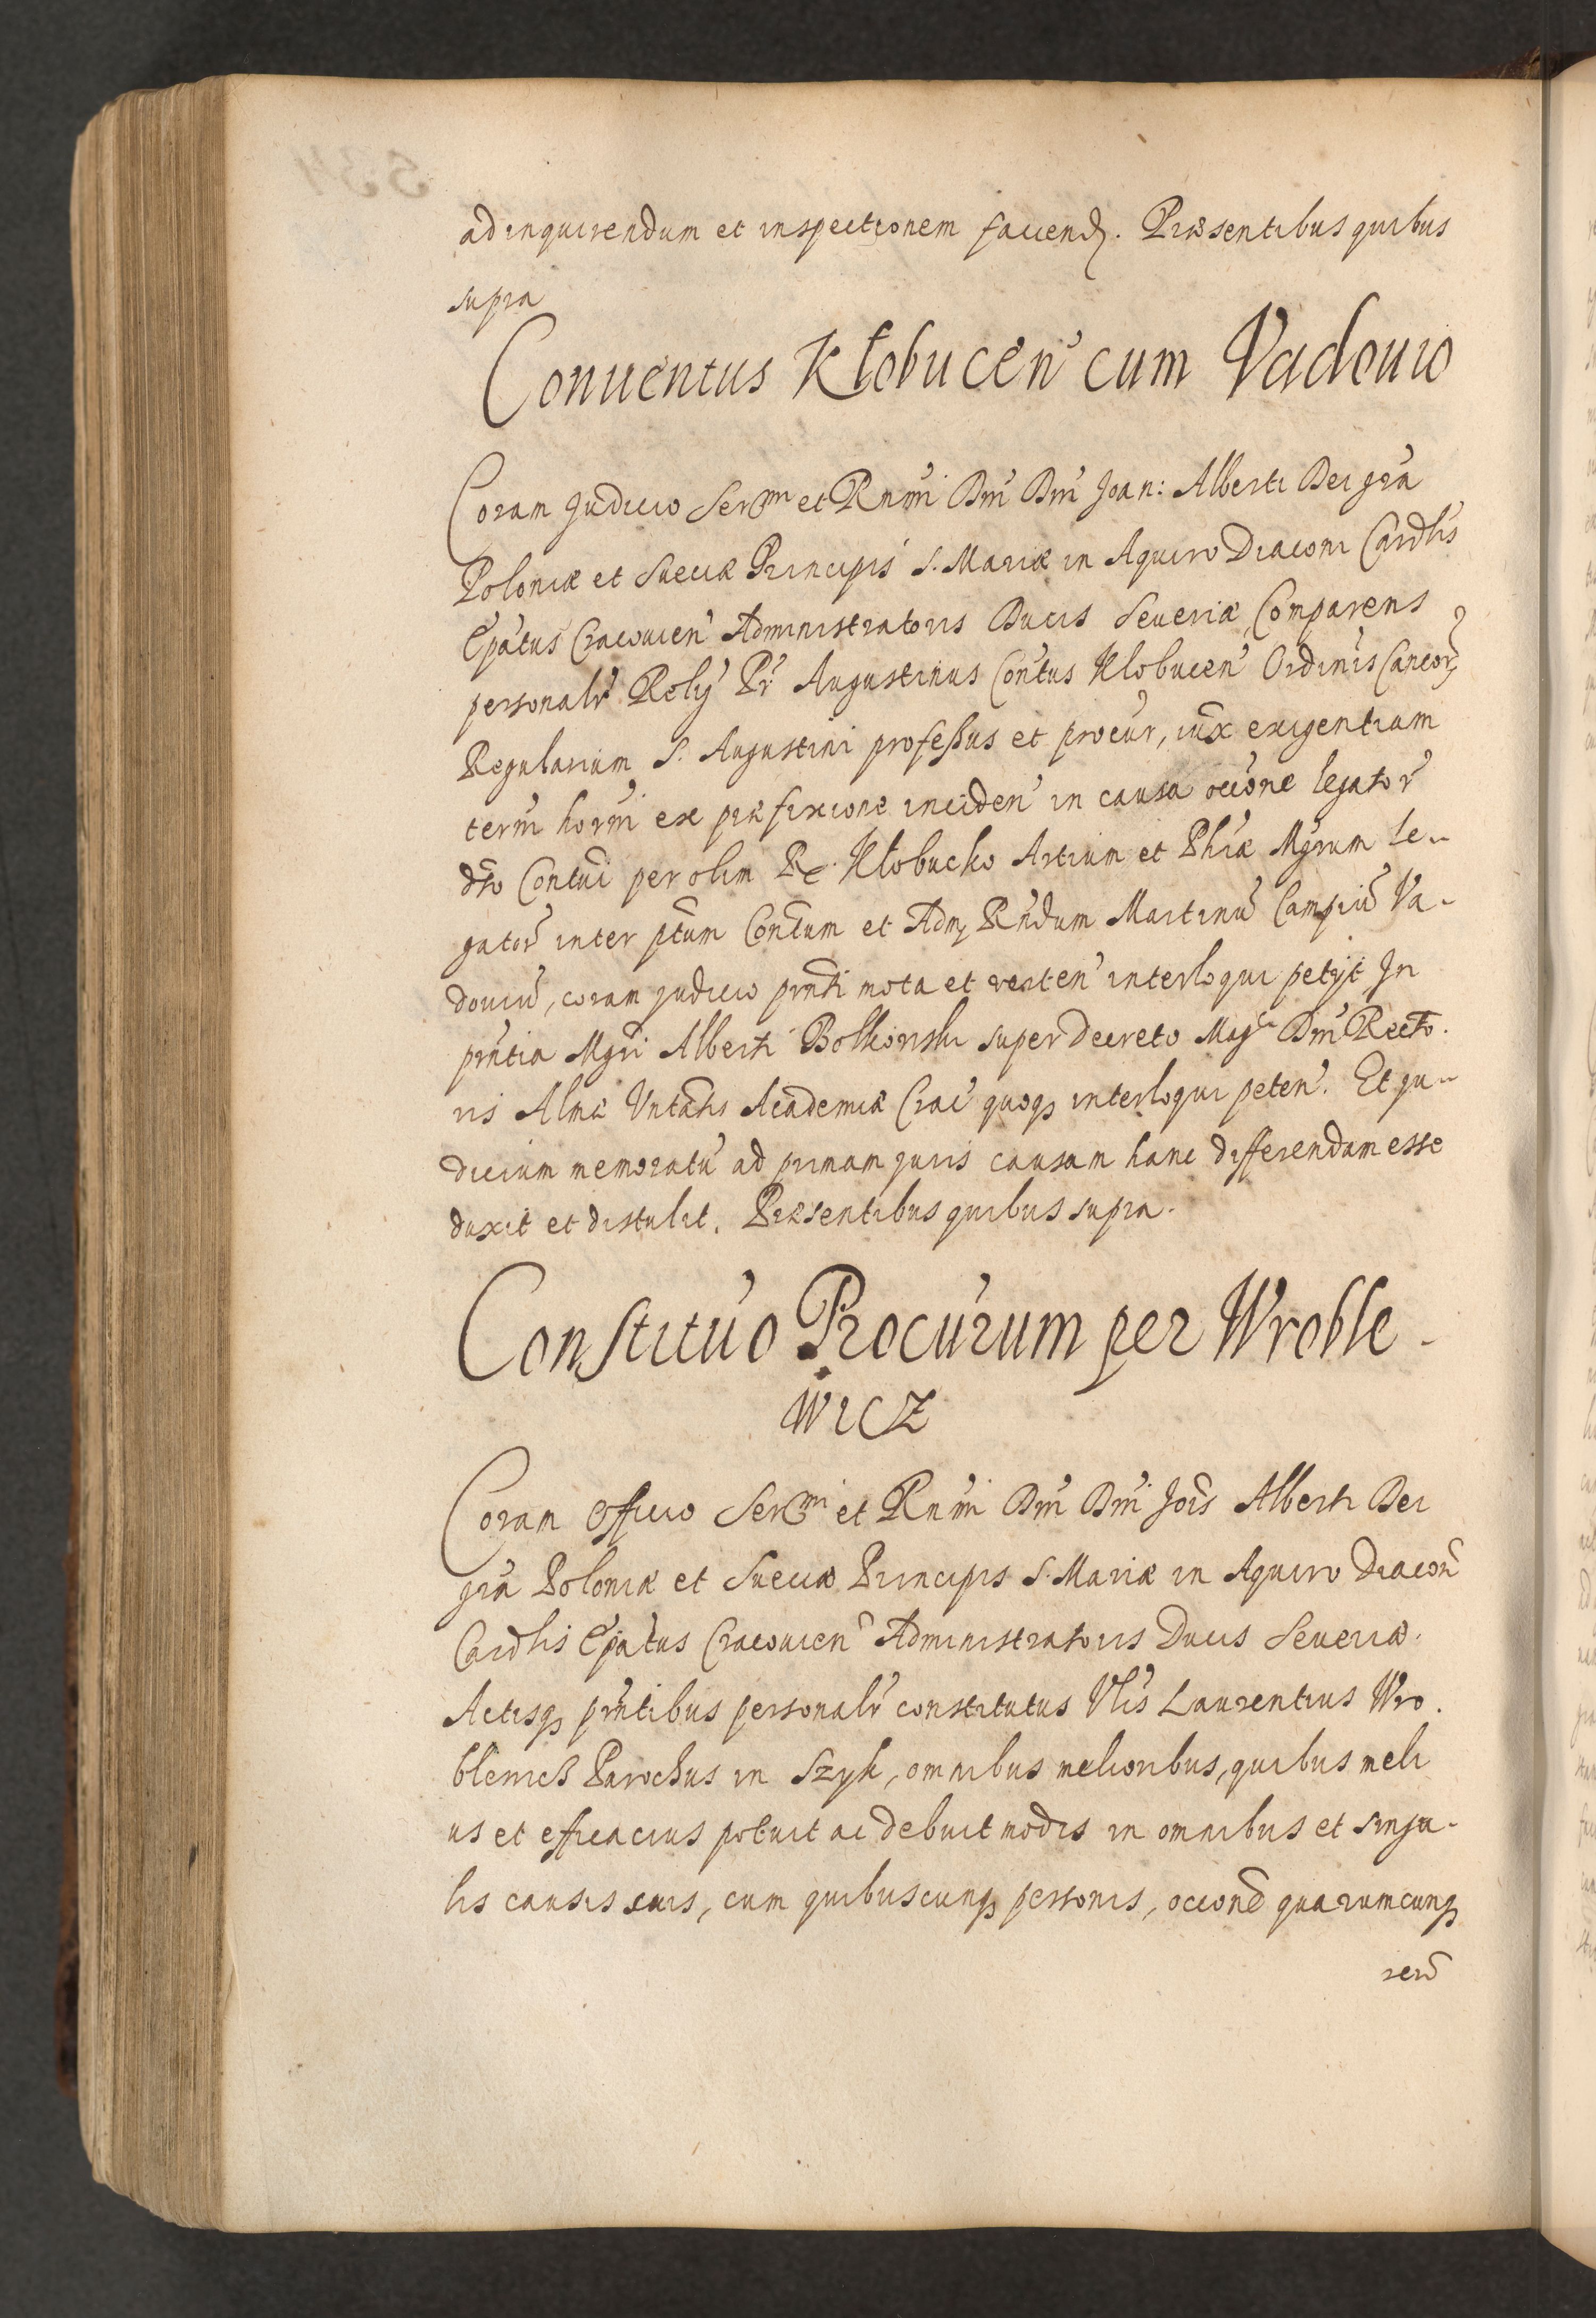 ad inquirendum et inspectionem faciend. Præsentibus quibus
supra
Conuentus Kłobucen cum Vadouio
Coram Judicio Sermi et Rnmi Dni Dni Joan: Alberti Dei gra
Poloniæ et Sueciæ Principis S. Mariæ in Aquiro Diaconi Cardlis
Epatus Cracouien Administratoris Ducis Seueriæ, Comparens
personalr Relig Pr Augustinus Contus Klobucen Ordinis Cancor
Regularium S. Augustini professus et procur, iux exigentiam
term horni ex præfixione inciden in causa occone legator
dto Contui per olim Kłobucko Artium et Phiæ Mgrum le-
gator inter ptum Contum et Adm Rndum Martinu Campiu Va-
douiu, coram judicio pnti mota et verten interloqui petijt In
pntia Mgri Alberti super decreto Mag Dni Recto.
ris Almæ Vntatis Academiæ Crac quoq interloqui peten. Et ju-
dicium memoratu ad primam juris causam hanc differendam esse
duxit et distulit. Præsentibus quibus supra.
Constituo Procurum per Wroble-
wicz
Coram Officio Sermi et Rnmi Dni Dni Jois Alberti Dei
gra Poloniæ et Sueciæ Principis S. Mariæ in Aquiro Diacon
Cardlis Epatus Cracouien Administratoris Ducis Seueriæ.
Actisq pntibus personalr constitutus Vlis Laurentius Wro.
blewicz Parochus in Szyk, omnibus melioribus, quibus meli
us et efficacius potuit ac debuit modis in omnibus et singu-
lis causis suis, cum quibuscunq personis, occone quarumcunq
reru